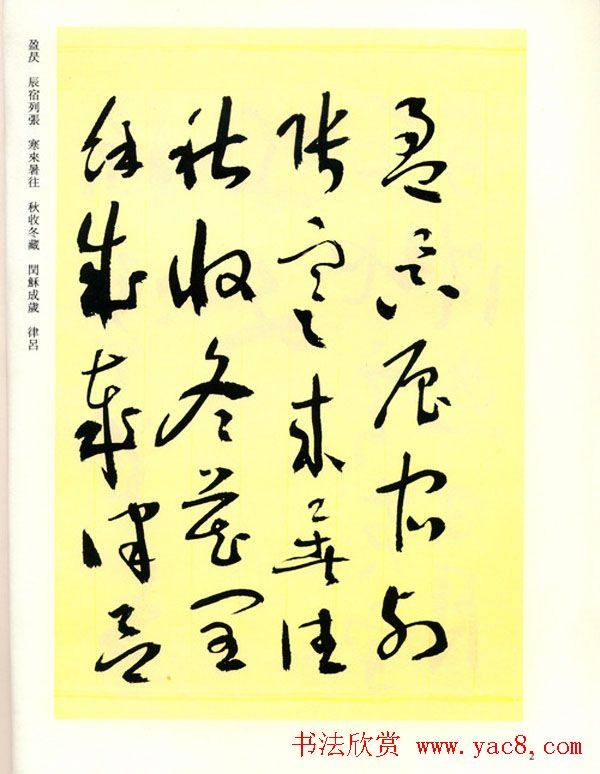 盈昃辰宿列
張寒來暑往
秋收冬藏閏
餘成歲律呂
盈昃 辰宿列張 寒來暑往 秋收冬藏 閏餘成歲 律呂
书法欣赏 www.yac8.com
2